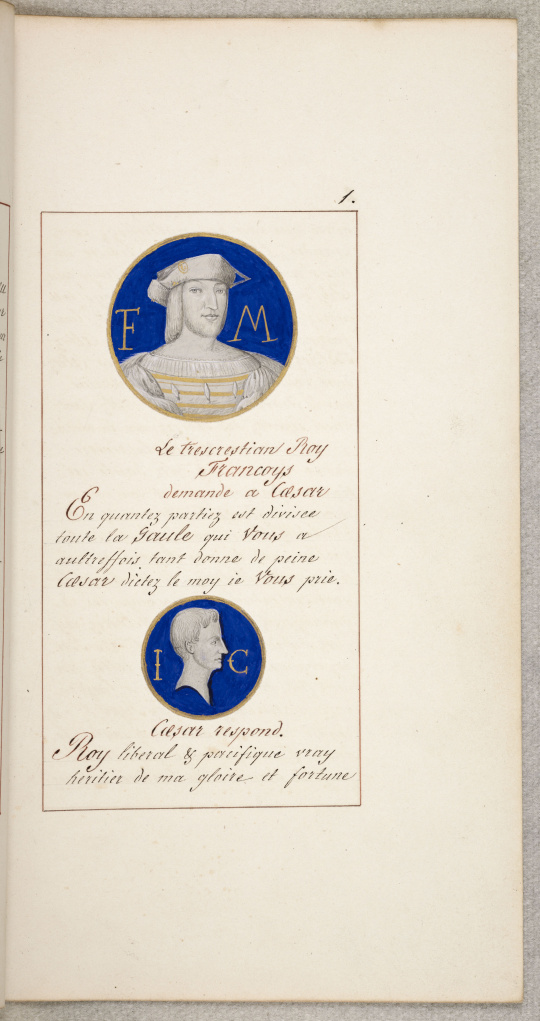 1.
F M
Le trescrestian Roy
Francoys
demande a Cæsar
En quantez partiez est divisee
toute la Gaule qui Vous a
aultreffois tant donne de peine
Cæsar dictez le moy ie Vous prie.
I C
Cæsar respond.
Roy liberal & pacifique vray
heritier de ma gloire et fortune